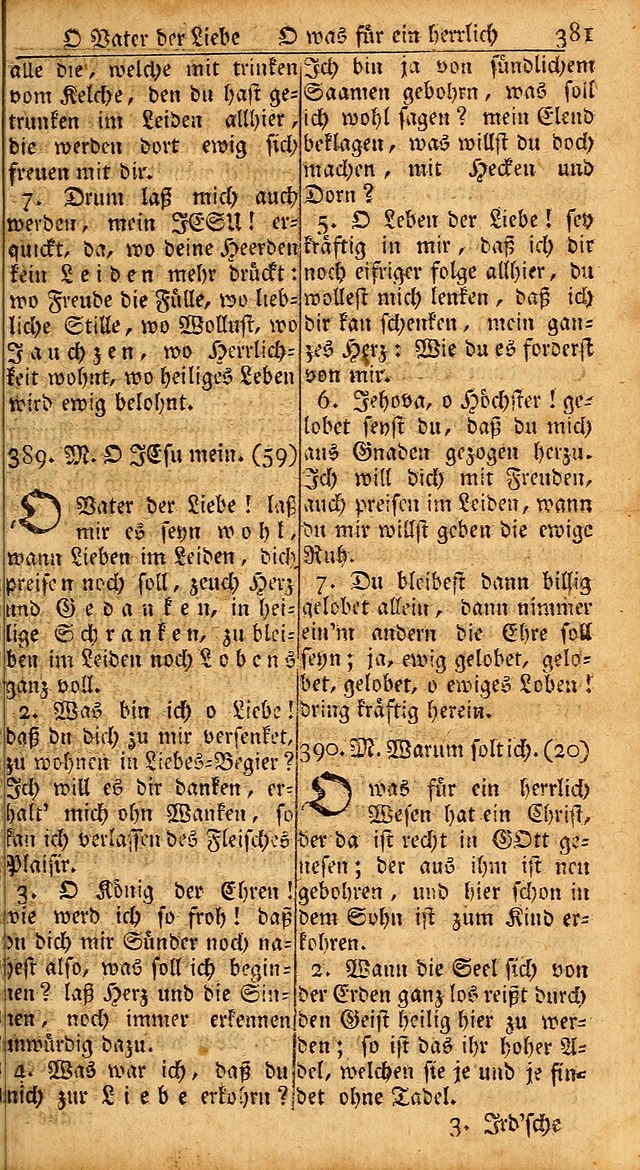 O Vater der Liebe O was für ein herrlich 381
alle die, welche mit trinken
vom Kelche, den du hast ge-
trunken im Leiden allhier,
die werden dort ewig sich
freuen mit dir.
7. Drum laß mich auch
werden, mein JESU! er-
quickt, da, wo deine Heerden
kein Leiden mehr drückt:
wo Freude die Fülle, wo lieb-
liche Stille, wo Wollust, wo
Jauchzen, wo Herrlich-
keit wohnt, wo heiliges Leben
wird ewig belohnt.
389. M. O JEsu mein. (59)
O Vater der Liebe! laß
mir es seyn wohl,
wann Lieben im Leiden, dich
preisen noch soll, zeuch Herz
und Gedanken, in hei-
lige Schranken, zu blei-
ben im Leiden noch Lobens
ganz voll.
2. Was bin ich o Liebe!
daß du dich zu mir versenket,
zu wohnen in Liebes-Begier?
Ich will es dir danken, er-
halt' mich ohn Wanken, so
kan ich verlassen des Fleisches
Plaisir.
3. O König der Ehren!
wie werd ich so froh! daß
du dich mir Sünder noch na-
hest also, was soll ich begin-
nen? laß Herz und die Sin-
nen, noch immer erkennen
unwürdig dazu.
4. Was war ich, daß du
mich zur Liebe erkohrn?
Ich bin ja von sündlichem
Saamen gebohrn, was soll
ich wohl sagen? mein Elend
beklagen, was willst du doch
machen, mit Hecken und
Dorn?
5. O Leben der Liebe! sey
kräftig in mir, daß ich dir
noch eifriger folge allhier, du
wollest mich lenken, daß ich
dir kan schenken, mein gan-
zes Herz: Wie du es forderst
von mir.
6. Jehova, o Höchster! ge-
lobet seyst du, daß du mich
aus Gnaden gezogen herzu.
Ich will dich mit Freuden,
auch preisen im Leiden, wann
du mir willst geben die ewige
Ruh.
7. Du bleibest dann billig
gelobet allein, dann nimmer
ein'm andern die Ehre soll
seyn; ja, ewig gelobet, gelo-
bet, gelobet, o ewiges Loben!
dring kräftig herein.
390. M. Warum solt ich. (20)
O was für ein herrlich
Wesen hat ein Christ,
der da ist recht in GOtt ge-
nesen; der aus ihm ist neu
gebohren, und hier schon in
dem Sohn ist zum Kind er-
kohren.
2. Wann die Seel sich von
der Erden ganz los reißt durch
den Geist heilig hier zu wer-
den; so ist das ihr hoher A-
del, welchen sie je und je fin-
det ohne Tadel.
3. Ird'sche